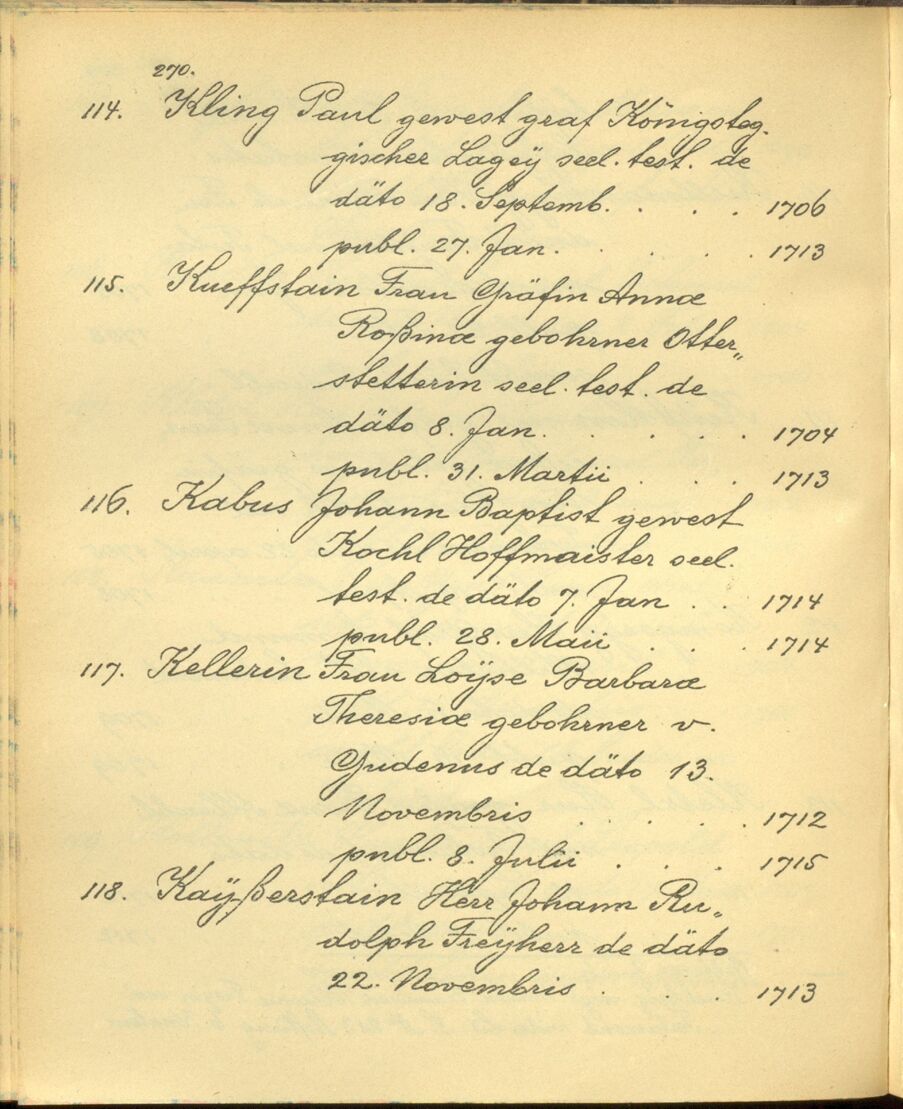 270.
114. Kling Paul gewest graf Königsteg-
gischer Lageÿ seel. test. de
däto 18. Septemb. . . . 1706
publ. 27. Jan. . . . . 1713
115. Kueffstain Frau Gräfin Annæ
Roßinæ gebohrner Otter„
stetterin seel. test. de
däto 8. Jan. . . . . . 1704
publ. 31. Martii . . . 1713
116. Kabus Johann Baptist gewest
Kochl Hoffmaister seel.
test. de däto 7. Jan . . 1714
publ. 28. Maii . . . 1714
117. Kellerin Frau Loÿse Barbaræ
Theresiæ gebohrner v.
Gudenus de däto 13.
Novembris . . . . . 1712
publ. 8. Julii . . . 1715
118. Kaÿßerstain Herr Johann Ru„
dolph Freÿherr de däto
22. Novembris . . . 1713